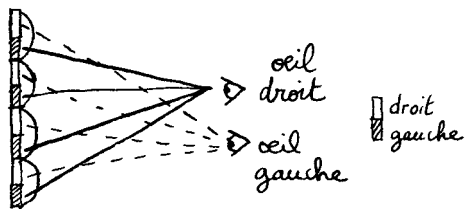 oeil
droit
oeil
gauche
droit
gauche